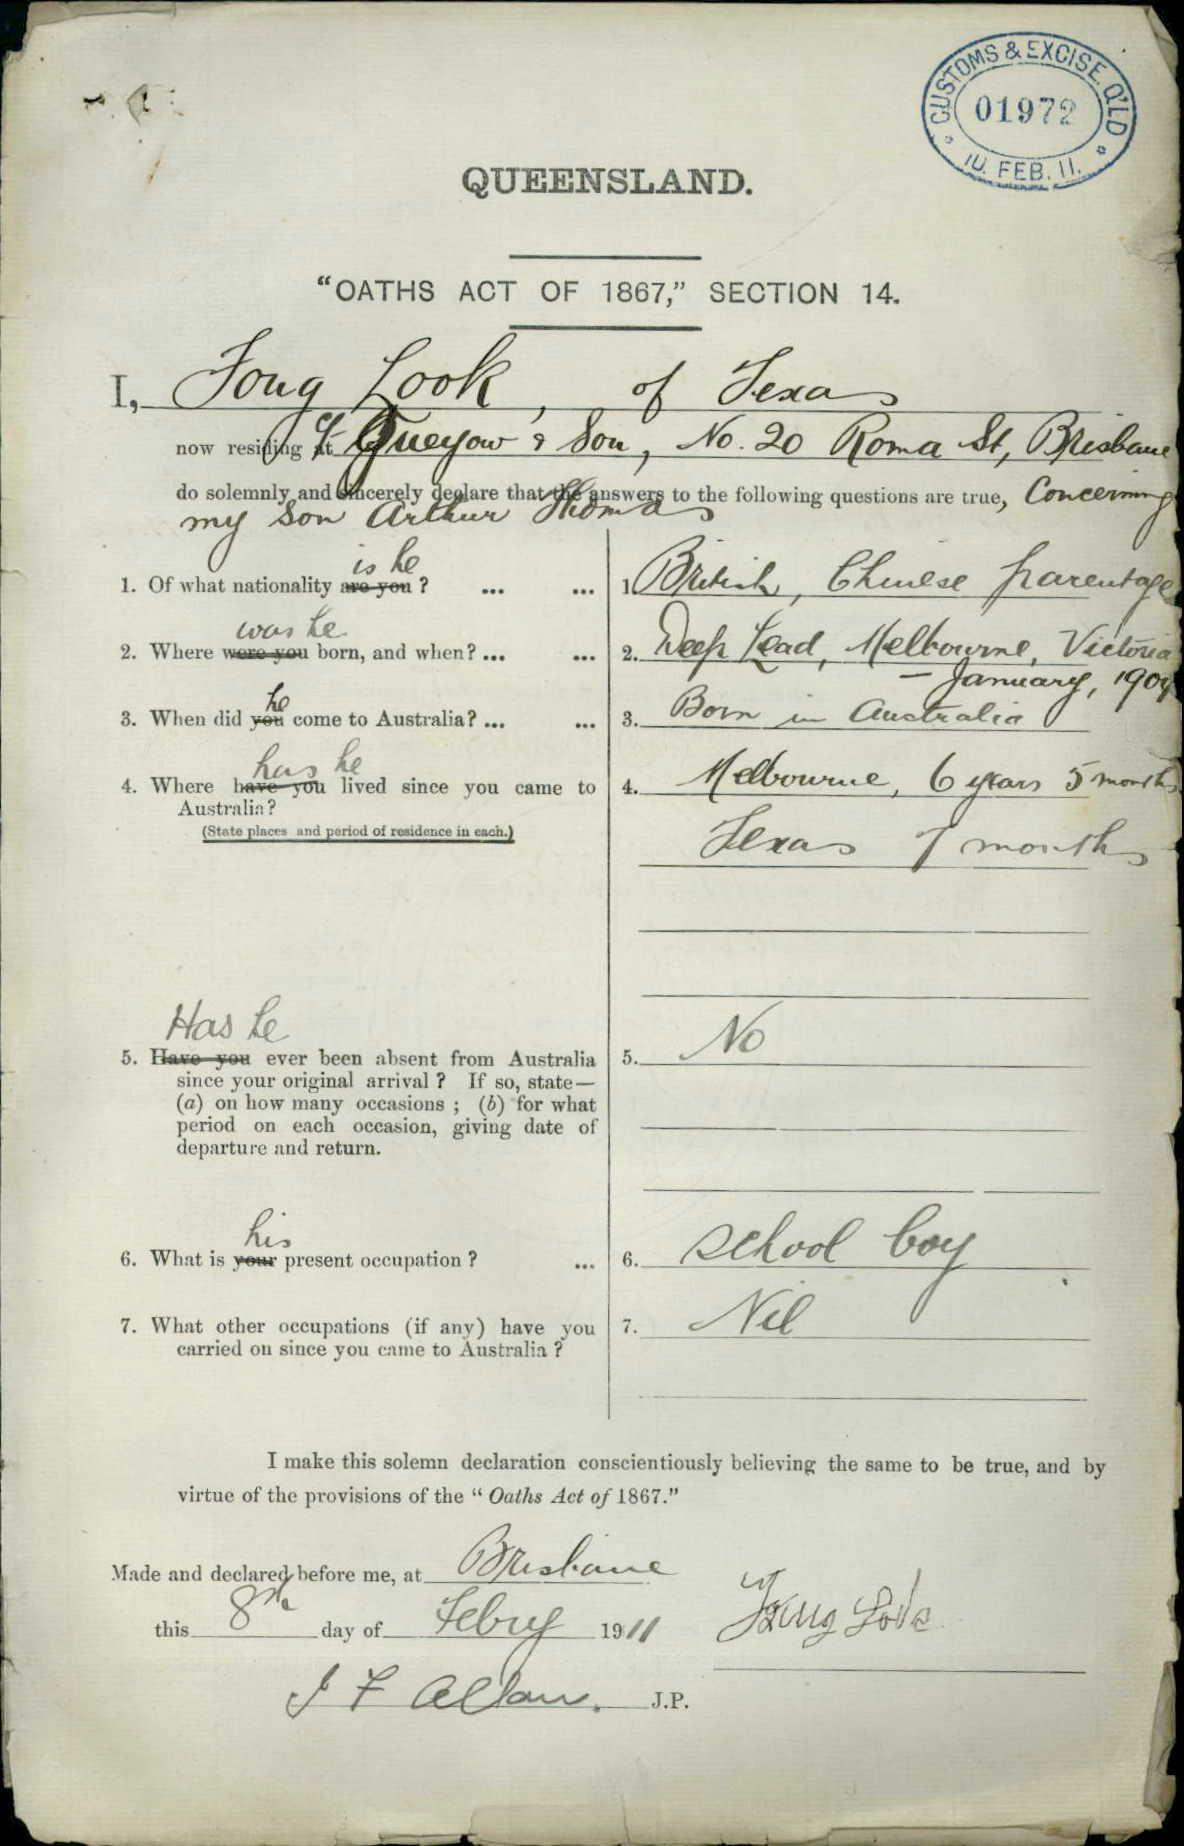 CUSTOMS & EXCISE. Q'LD
01972
10. FEB. 11.
QUEENSLAND.
"OATHS ACT OF 1867," SECTION 14.
I, Fong Look, of Texas
now residing at c/- Queyow & Son, No. 20 Roma St, Brisbane
do solemnly and sincerely declare that the answers to the following questions are true, Concerning
my son Arthur Thomas
is he
1. Of what nationality are you? ... ... 1. British, Chinese parentage
was he
2. Where were you born, and when? ... ... 2. Deep Lead, Melbourne, Victoria
– January, 1904
he
3. When did you come to Australia? ... ... 3. Born in Australia
has he
4. Where have you lived since you came to 4. Melbourne, 6 years 5 months
Australia?
(State places and period of residence in each.)
Texas 7 months
Has he
5. Have you ever been absent from Australia 5. No
since your original arrival? If so, state—
(a) on how many occasions; (b) for what
period on each occasion, giving date of
departure and return.
his
6. What is your present occupation? ... 6. School boy
7. What other occupations (if any) have you 7. Nil
carried on since you came to Australia?
I make this solemn declaration conscientiously believing the same to be true, and by
virtue of the provisions of the "Oaths Act of 1867."
Made and declared before me, at Brisbane
this 8th day of Febry 1911 Fong Look
J F Allan. J.P.